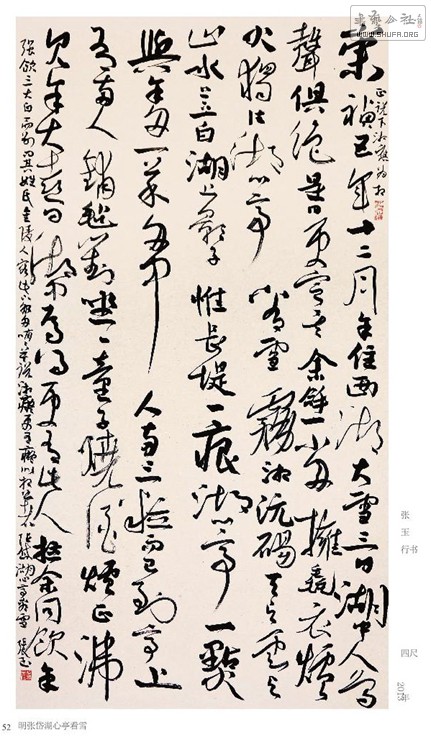 崇禎五年十二月余住西湖大雪三日湖中人鳥
聲俱絕是日更定矣余拏一小舟擁毳衣爐
火獨往湖心亭看雪霧凇沆碭天與雲與
山水上下一白湖上影子惟長堤一痕湖心亭一點
與余舟一芥舟中人兩三粒而已到亭上
有兩人鋪氈對坐一童子燒酒爐正沸
見余大喜曰湖中焉得更有此人拉余同飲余
强飲三大白而別問其姓氏是金陵人客此 張岱湖心亭看雪 張玉
书艺公社
WWW.SHUFA.ORG
张玉
行书
四尺
2013年
52 明张岱湖心亭看雪